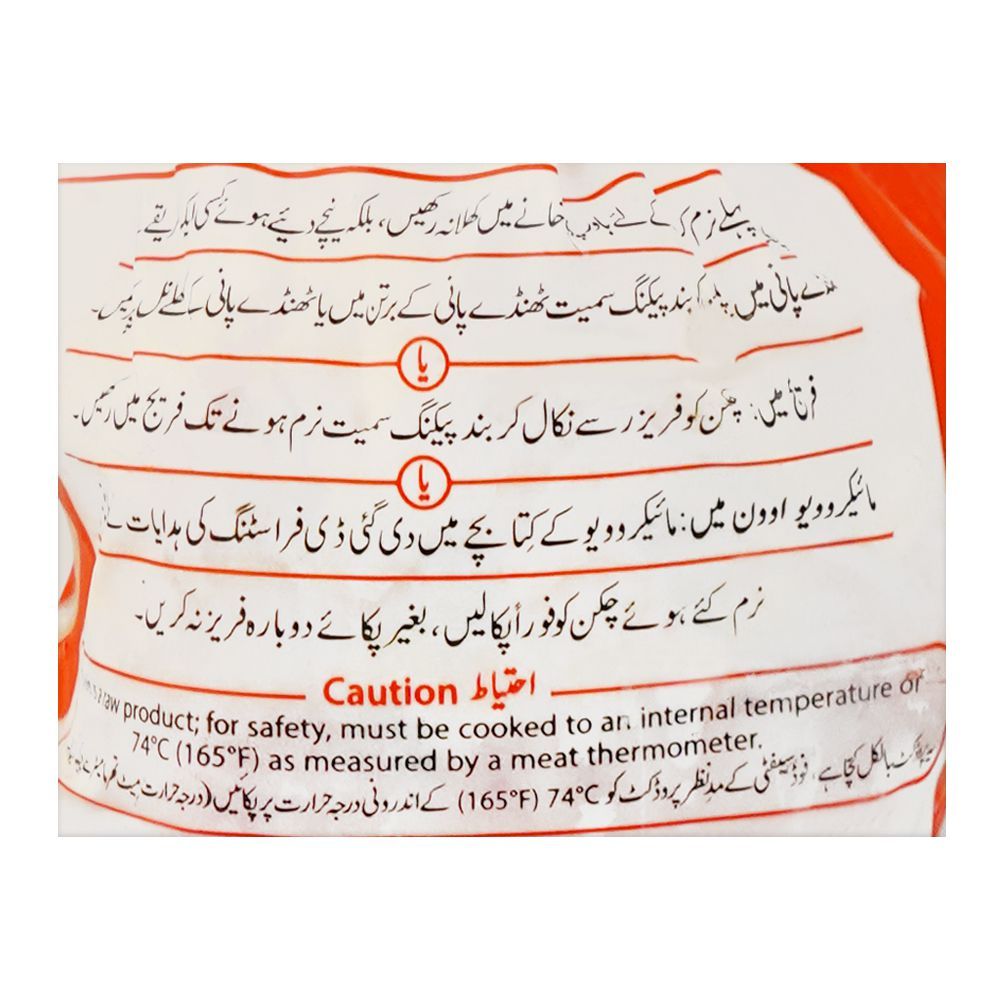 پہلے نرم کے لئے خانے میں کھلا نہ رکھیں، بلکہ نیچے دئیے ہوئے کسی ایک
پانی میں: بند پیکنگ سمیت ٹھنڈے پانی کے برتن میں یا ٹھنڈے پانی کے کھلے نل
یا
فریج میں: چکن کو فریزر سے نکال کر بند پیکنگ سمیت نرم ہونے تک فریج میں رکھیں۔
یا
مائیکروویو اوون میں: مائیکروویو کے کتابچے میں دی گئی ڈی فراسٹنگ کی ہدایات
نرم کئے ہوئے چکن کو فوراً پکالیں، بغیر پکائے دوبارہ فریز نہ کریں۔
Caution احتیاط
raw product; for safety, must be cooked to an internal temperature of
74°C (165°F) as measured by a meat thermometer.
یہ پروڈکٹ بالکل کچا ہے، فوڈ سیفٹی کے مدِنظر پروڈکٹ کو 74°C (165°F) کے اندرونی درجہ حرارت پر پکائیں (درجہ حرارت میٹ تھرمامیٹر سے